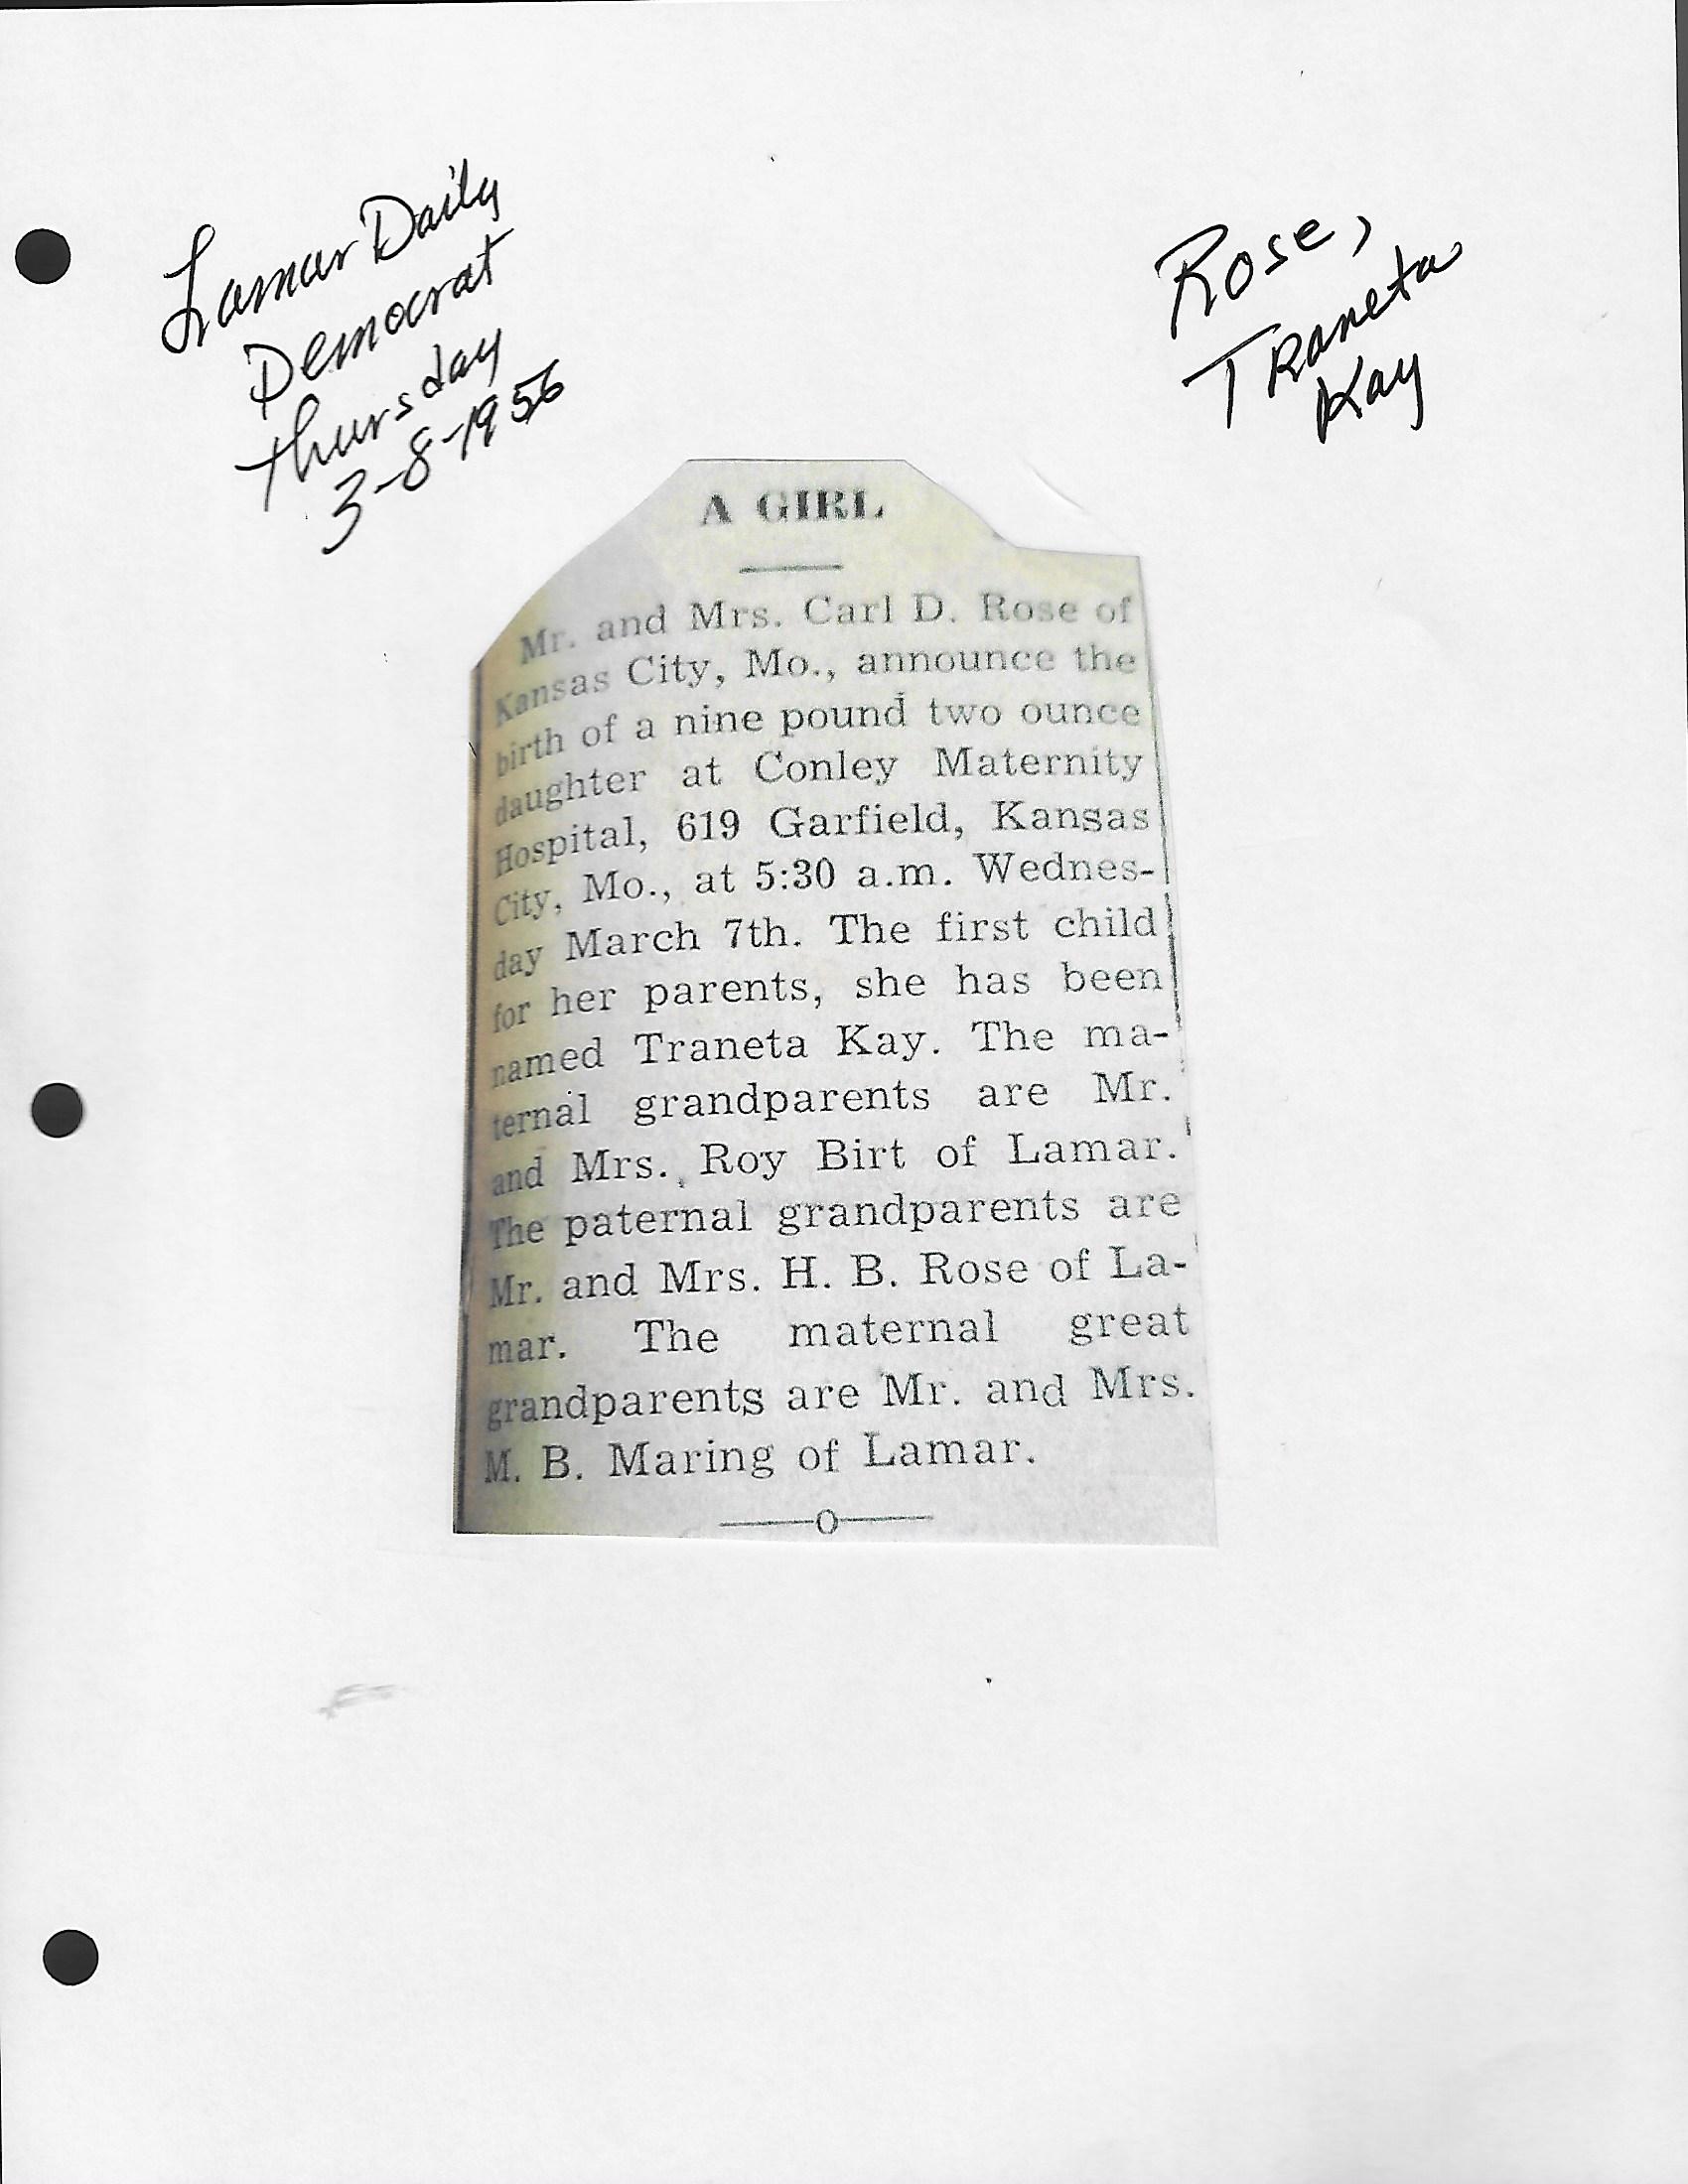 Lamar Daily
Democrat
Thursday
3-8-1956
Rose,
Traneta
Kay
A GIRL
Mr. and Mrs. Carl D. Rose of
Kansas City, Mo., announce the
birth of a nine pound two ounce
daughter at Conley Maternity
Hospital, 619 Garfield, Kansas
City, Mo., at 5:30 a.m. Wednes-
day March 7th. The first child
for her parents, she has been
named Traneta Kay. The ma-
ternal grandparents are Mr.
and Mrs. Roy Birt of Lamar.
The paternal grandparents are
Mr. and Mrs. H. B. Rose of La-
mar. The maternal great
grandparents are Mr. and Mrs.
M. B. Maring of Lamar.
——O——